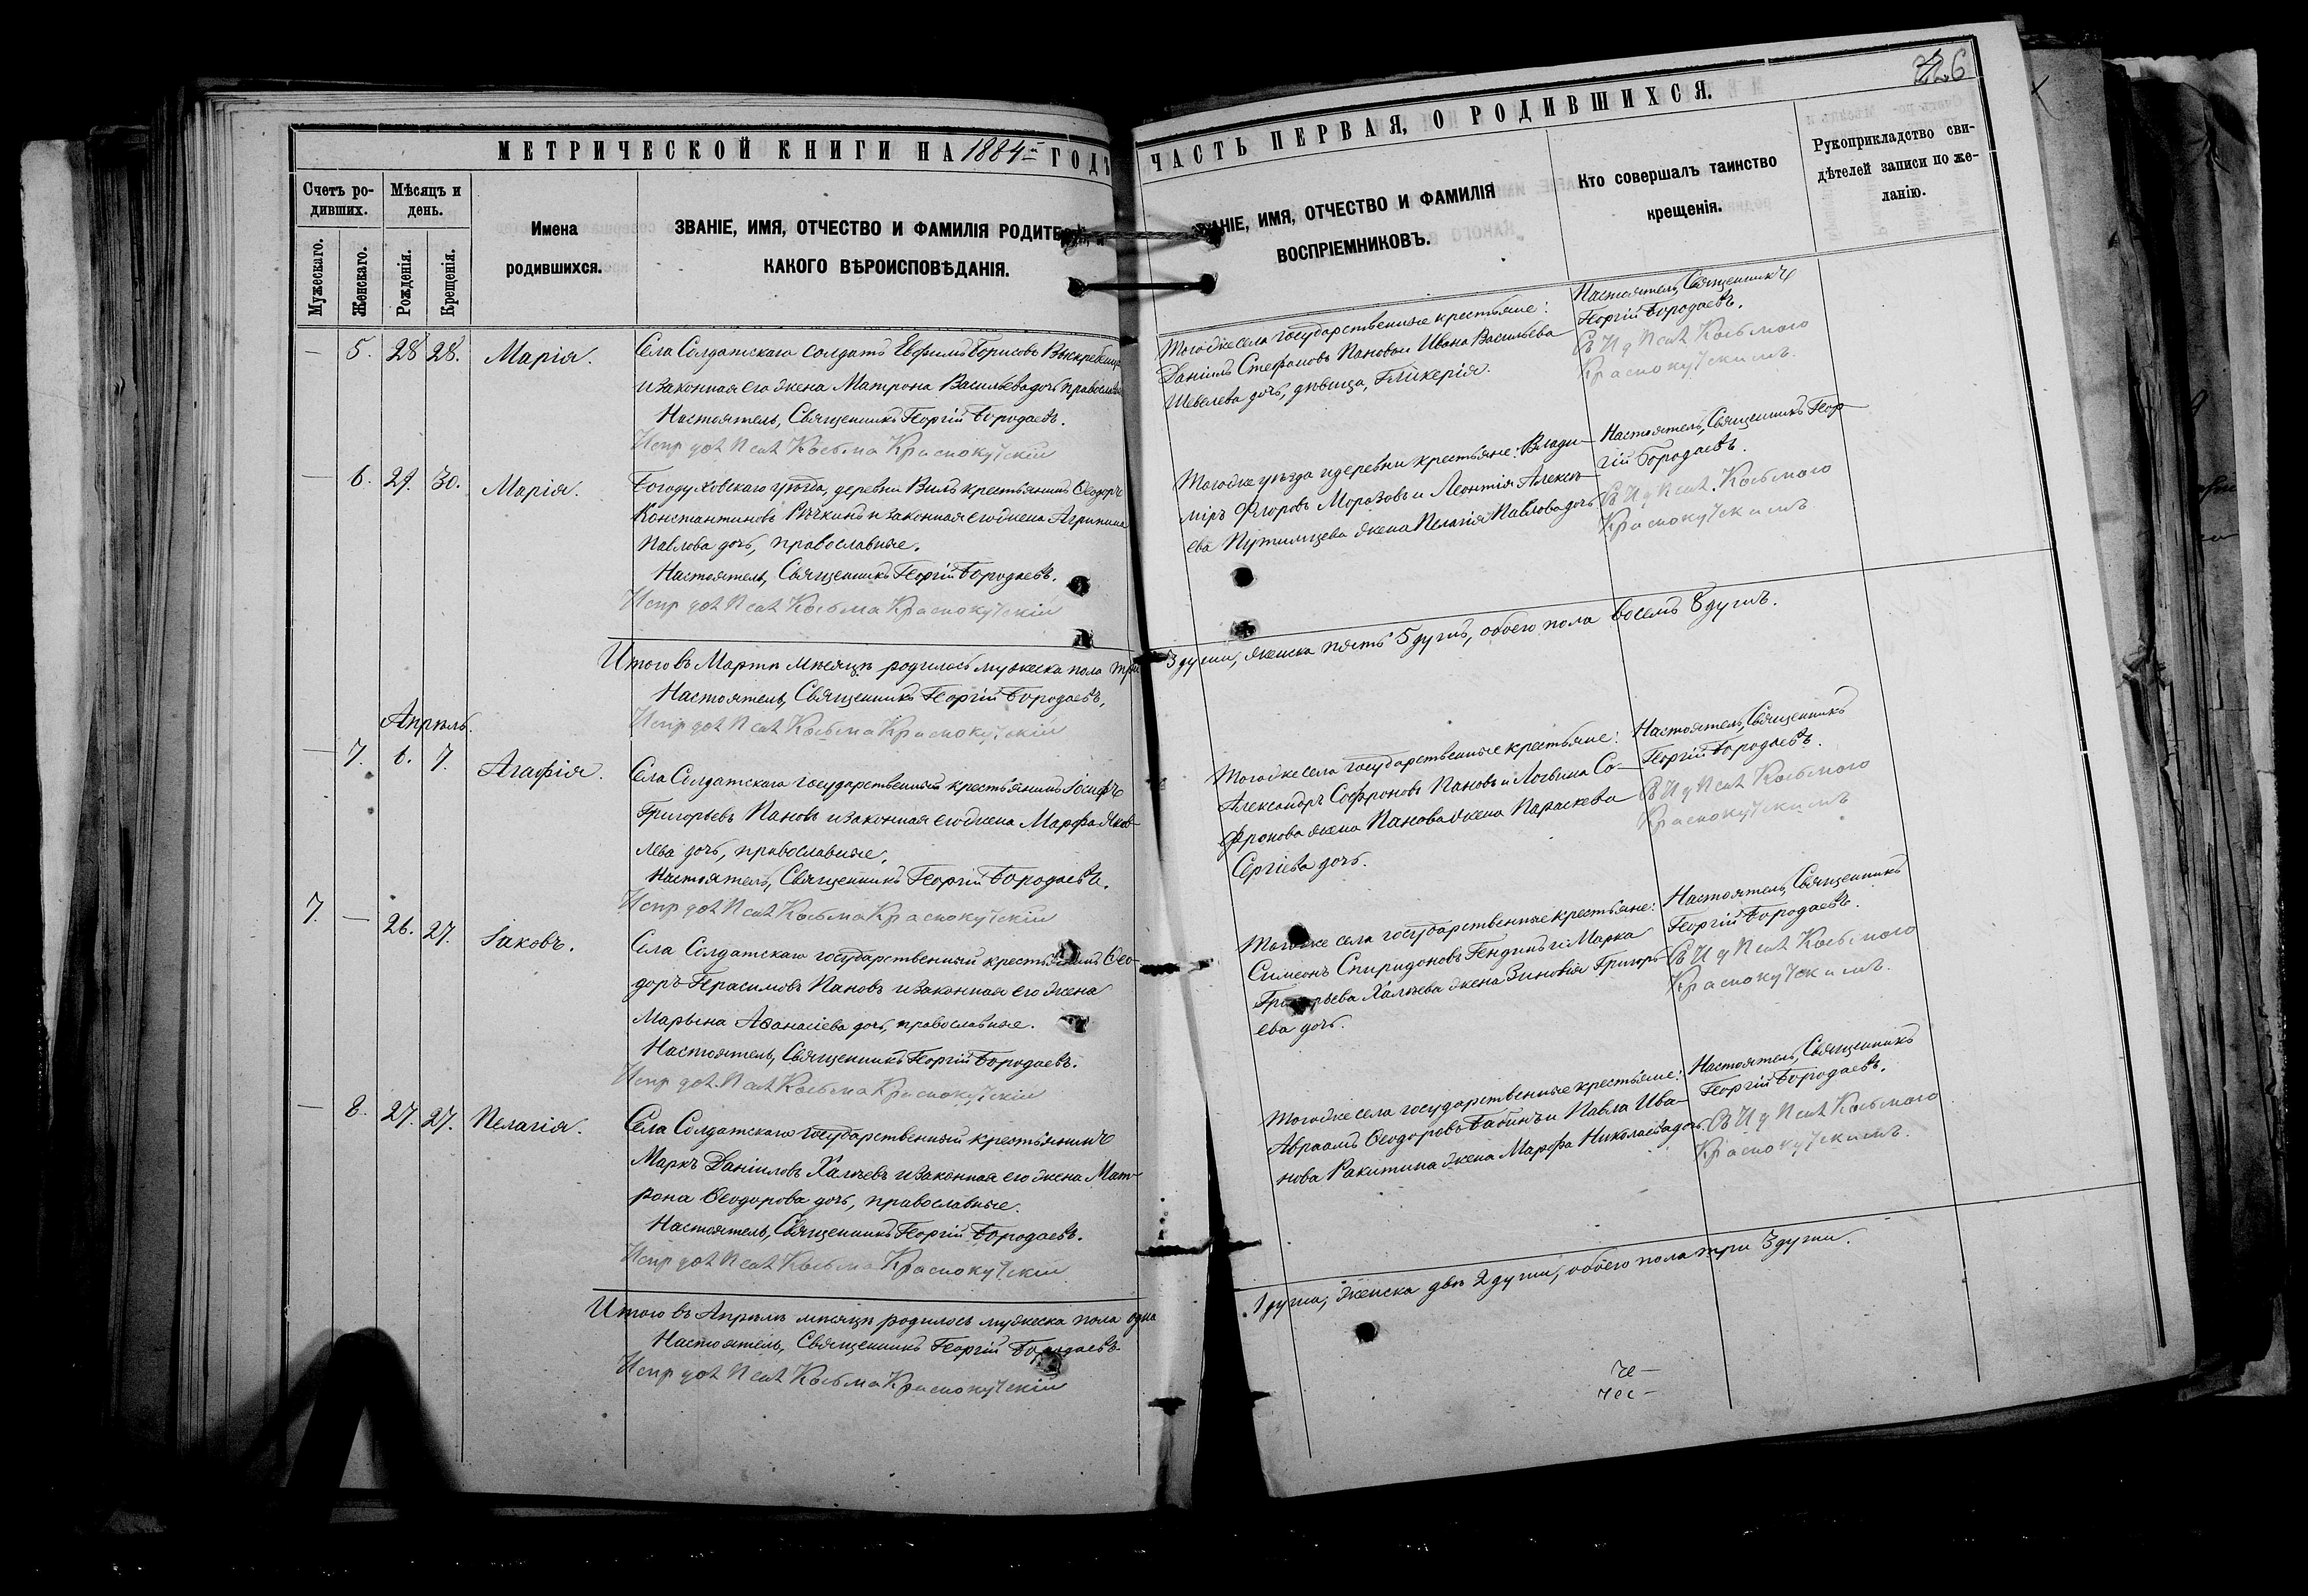 МЕТРИЧЕСКОЙ КНИГИ НА 1884 ГОДЪ
Счетъ ро-
дивших.
Мѣсяцъ и
день.
Мужескаго.
Женскаго.
Рожденія.
Крещенія.
Имена
родившихся.
ЗВАНІЕ, ИМЯ, ОТЧЕСТВО И ФАМИЛІЯ РОДИТЕ
КАКОГО ВѢРОИСПОВѢДАНІЯ.
— 5. 28 28. Марія.
Села Солдатскаго солдатъ Евфимъ Борисовъ
и законная его жена Матрона Васильева дочь
Настоятель, Священникъ Георгій Бородаевъ.
Испр дол Псал Косьма Краснокутскій
— 6. 29. 30. Марія.
Богодуховскаго уѣзда, деревни крестьянинъ Ѳеодоръ
Константиновъ и законная его жена Агрипина
Павлова дочь, православные.
Настоятель, Священникъ Георгій Бородаевъ.
Испр дол Псал Косьма Краснокутскій
Итого въ Мартѣ мѣсяцѣ родилось мужеска пола три
Настоятель, Священникъ Георгій Бородаевъ.
Испр дол Псал Косьма Краснокутскій
Апрѣль.
— 7. 6. 7. Агафія.
Села Солдатскаго государственный крестьянинъ Іосифъ
Григорьевъ Пановъ и законная его жена Марфа Яков-
лева дочь, православные.
Настоятель, Священникъ Георгій Бородаевъ.
Испр дол Псал Косьма Краснокутскій
7. — 26. 27. Іаковъ.
Села Солдатскаго государственный крестьянинъ Ѳео-
доръ Герасимовъ Пановъ и законная его жена
Марѳина Аѳанасіева дочь, православные.
Настоятель, Священникъ Георгій Бородаевъ.
Испр дол Псал Косьма Краснокутскій
— 8. 27. 27. Пелагія.
Села Солдатскаго государственный крестьянинъ
Маркъ Даніиловъ Халѣевъ и законная его жена Мат-
рона Ѳеодорова дочь, православные.
Настоятель, Священникъ Георгій Бородаевъ.
Испр дол Псал Косьма Краснокутскій
Итого въ Апрѣлѣ мѣсяцѣ родилось мужеска пола одна
Настоятель, Священникъ Георгій Бородаевъ.
Испр дол Псал Косьма Краснокутскій
ЧАСТЬ ПЕРВАЯ, О РОДИВШИХСЯ.
НІЕ, ИМЯ, ОТЧЕСТВО И ФАМИЛІЯ
ВОСПРІЕМНИКОВЪ.
Кто совершалъ таинство
крещенія.
Рукоприкладство сви-
дѣтелей записи по же-
ланію.
Того же села государственные крестьяне:
Даніилъ Стефановъ Пановъ и Ивана Васильева
Шевелева дочь, дѣвица, Гликерія.
Настоятель, Священникъ
Георгій Бородаевъ.
Съ И д Псал Косьмою
Краснокутскимъ.
Того же уѣзда и деревни крестьяне: Влади-
міръ Флоровъ Морозовъ и Леонтія Алексѣ-
ева Путимцева жена Пелагія Павлова дочь
Настоятель, Священникъ Геор-
гій Бородаевъ.
Съ И д Псал. Косьмою
Краснокутскимъ
3 души, женска пять 5 душъ, обоего пола восемь 8 душъ.
Того же села государственные крестьяне:
Александръ Софроновъ Пановъ и Логвина Со-
фронова жена Панова жена Параскева
Сергіева дочь.
Настоятель, Священникъ
Георгій Бородаевъ.
Съ И д Псал Косьмою
Краснокутскимъ
Того же села государственные крестьяне:
Симеонъ Спиридоновъ Гендинъ и Марка
Григорьева Халѣева жена Зиновія Григорь-
ева дочь.
Настоятель, Священникъ
Георгій Бородаевъ.
Съ И д Псал Косьмою
Краснокутскимъ.
Того же села государственные крестьяне:
Авраамъ Ѳеодоровъ Бабинъ и Павла Ива-
нова Ракитина жена Марфа Николаева дочь.
Настоятель, Священникъ
Георгій Бородаевъ.
Съ И д Псал Косьмою
Краснокутскимъ.
1 душа; женска двѣ 2 души, обоего пола три 3 души.